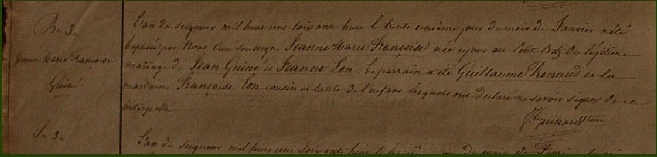 B. 3.
Jeanne Marie Françoise
Guiné
L'an du seigneur mil huit cent soixante huit le trente unième jour du mois de Janvier a été
baptisée par Nous Curé soussigné Jeanne Marie Françoise née ce jour au du légitime
mariage de Jean Guiné et Jeanne Lon. Le parrain a été Guillaume Renaud et la
marraine Françoise Lon cousin et tante de l'enfant lesquels ont déclaré ne savoir signer de ce
interpellés
S. 3.
L'an du seigneur mil huit cent soixante huit le du mois de